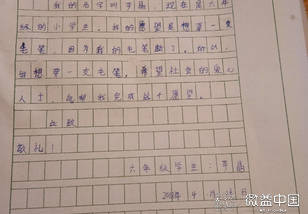 我的名字叫 现在是六年
级的小学生。我的愿望是想要一支
毛笔,因为我的毛笔 了,所以
我想要一支毛笔。希望社会的爱心
人士,能帮我完成这个愿望。
此致
敬礼!
六年级学生:
年4月
微益中国